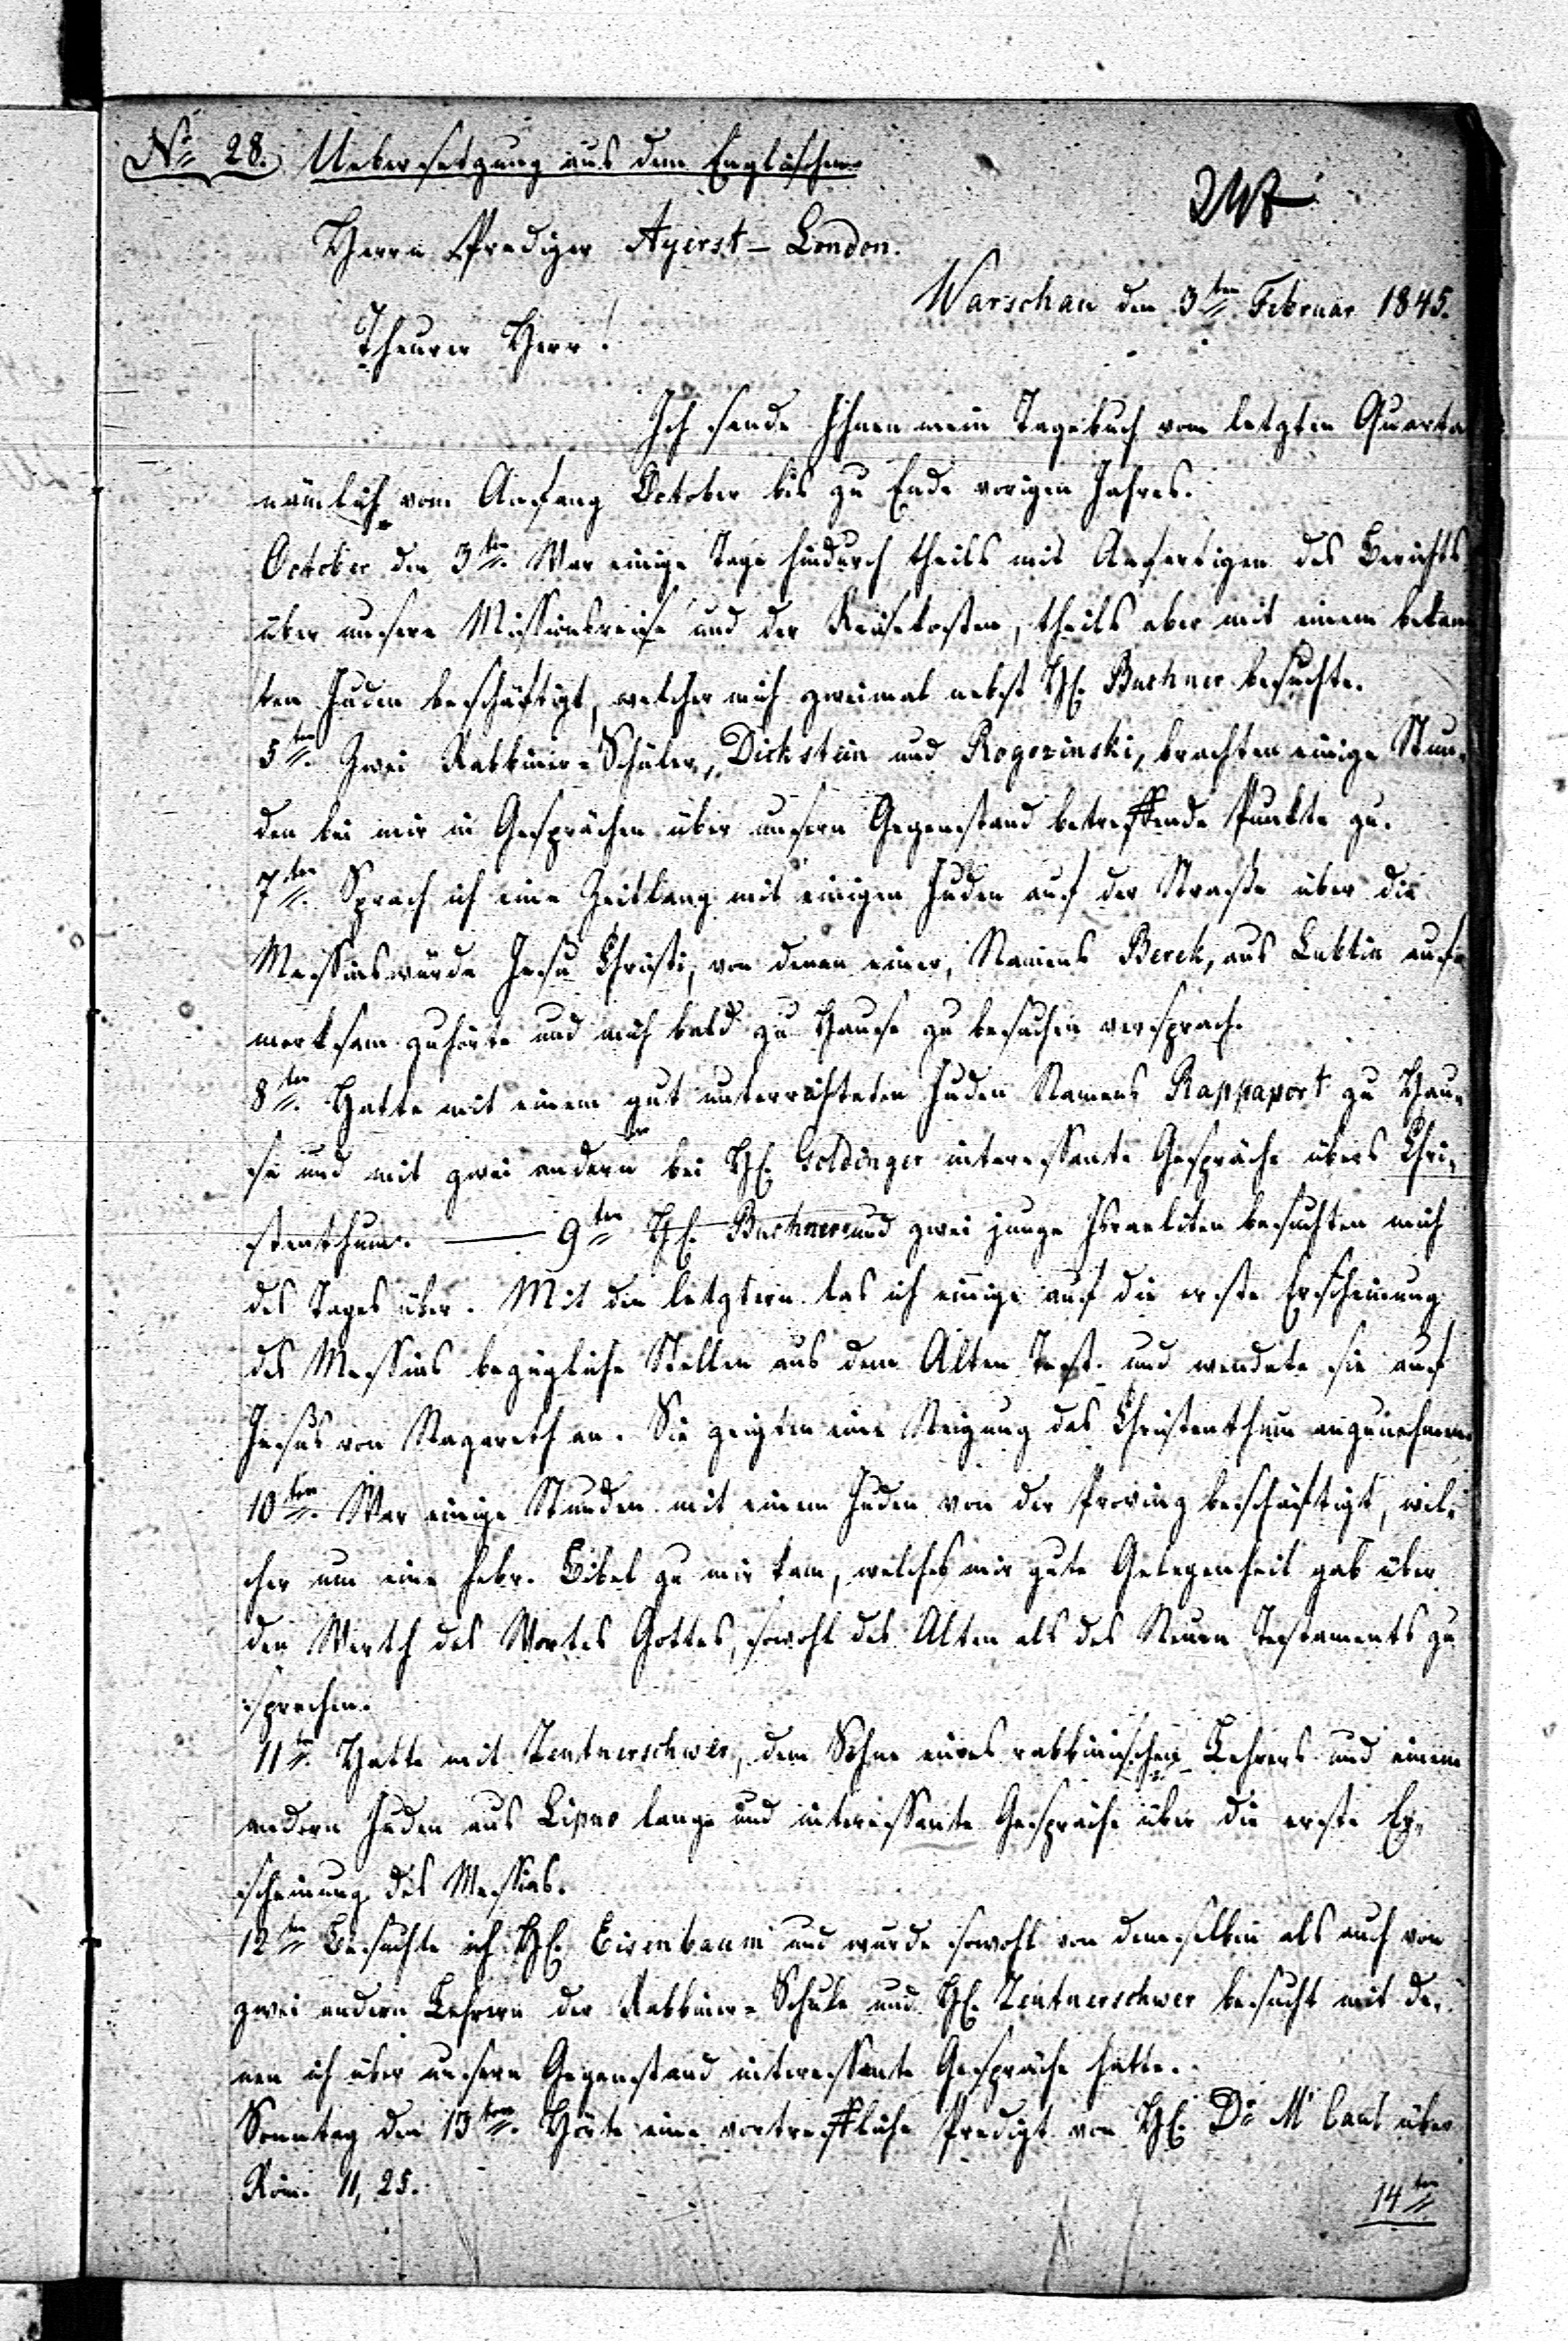 No 28. Uebersetzung aus dem Englischen
Herrn Prediger Ayerst – London.
Warschau den 3ten Februar 1845.
Theurer Herr!
Ich sende Ihnen mein Tagebuch vom letzten Quartal
nämlich vom Anfang October bis zu Ende vorigen Jahres.
October den 3ten. War einige Tage hindurch theils mit Anfertigen des Berichts
über unsere Missionsreise und der Reisekosten, theils aber mit einem bekann
ten Juden beschäftigt, welcher mich zweimal nebst H. Buchner besuchte.
5ten. Zwei Rabbiner-Schüler, Dickstein und Rogozinski, brachten einige Stun-
den bei mir in Gesprächen über unsern Gegenstand betreffende Punkte zu.
7ten. Sprach ich eine Zeitlang mit einigen Juden auf der Straße über die
Messiaswürde Jesu Christi, von denen einer, Namens Berek, aus Lublin auf-
merksam zuhörte und mich bald zu Hause zu besuchen versprach.
8ten. Hatte mit einem gut unterrichteten Juden Namens Rappaport zu Hau-
se und mit zwei andern bei H. Goldinger interessante Gespräche übers Chri-
stenthum. — 9ten H. Buchner und zwei junge Israeliten besuchten mich
des Tages über. Mit den letztern las ich einige auf die erste Erscheinung
des Messias bezügliche Stellen aus dem Alten Test. und wendete sie auf
Jesus von Nazareth an. Sie zeigten eine Neigung das Christenthum anzunehmen.
10ten. War einige Stunden mit einem Juden von der Provinz beschäftigt, wel-
cher um eine hebr. Bibel zu mir kam, welches mir gute Gelegenheit gab über
den Werth des Wortes Gottes, sowohl des Alten als des Neuen Testaments zu
sprechen.
11ten. Hatte mit Zentnerschwer, dem Sohne eines rabbinischen Lehrers und einem
andern Juden aus Lipno lange und interessante Gespräche über die erste Er-
scheinung des Messias.
12ten Besuchte ich H. Eisenbaum und wurde sowohl von demselben als auch von
zwei andern Lehrern der Rabbiner-Schule und H. Zentnerschwer besucht mit de-
nen ich über unsern Gegenstand interessante Gespräche hatte.
Sonntag den 13ten. Hörte eine vortreffliche Predigt von H. Dr McCaul über
Röm. 11, 25.
14ten